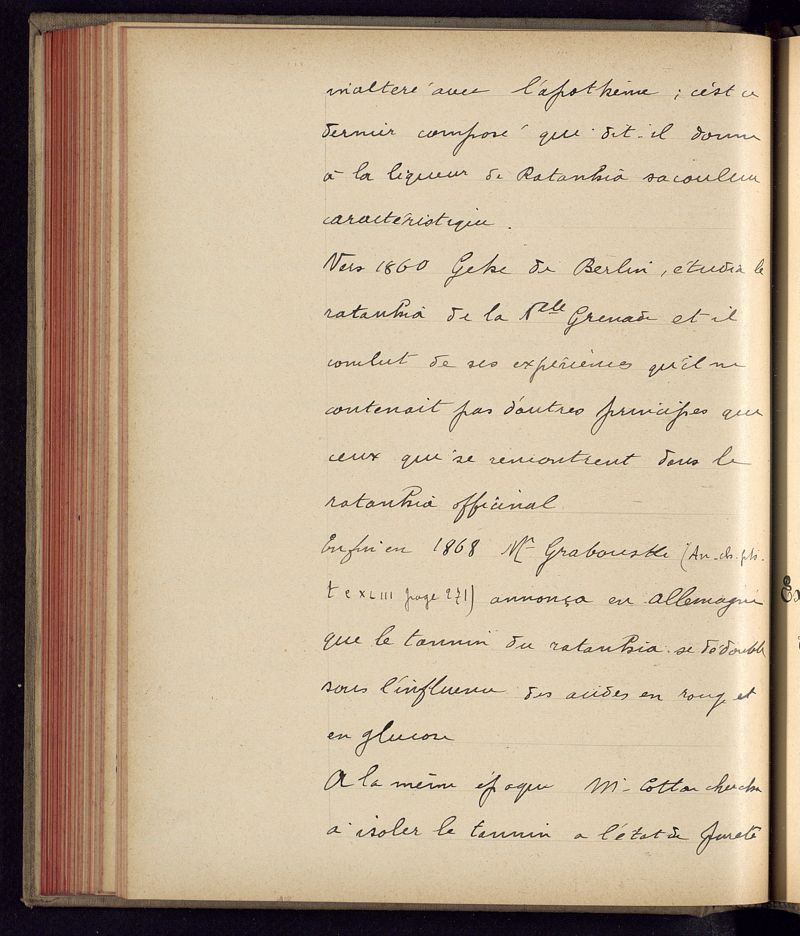 inalteré avec l'apothème ; c'est ce
dernier composé que dit-il donne
à la liqueur de Ratanhia sa couleur
caractéristique.
Vers 1860 Gehe de Berlin, étudia le
ratanhia de la Nlle Grenade et il
conclut de ses expériences qu'il ne
contenait pas d'autres principes que
ceux qui se rencontrent dans le
ratanhia officinal
Enfin en 1868 Mr Grabouski (An. ch. ph.
t CXLIII page 271) annonça en Allemagne
que le tannin du ratanhia se dédouble
sous l'influence des acides en rouge et
en glucose
A la même époque Mr Cotton chercha
a isoler le tannin a l'état de pureté
Ex